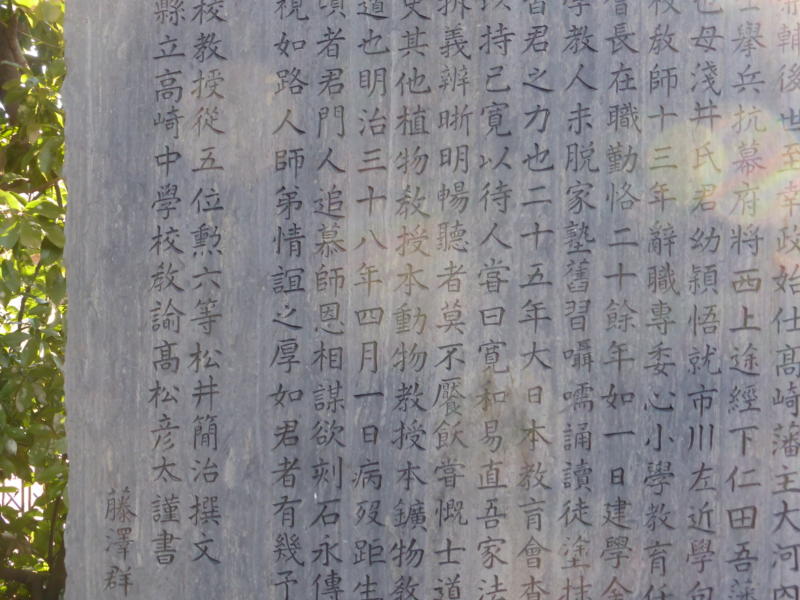 輔後世至幸政始仕高崎藩主大河内
士擧兵抗幕府將西上途經下仁田吾藩
也母淺井氏君幼穎悟就市川左近學句
校教師十三年辭職專委心小學教育任
會長在職勤恪二十餘年如一日建學舍
學教人未脱家塾舊習囁嚅誦讀徒塗抹
君之力也二十五年大日本教育會查
持己寛以待人嘗曰寛和易直吾家法
義辨晰明暢聽者莫不饜飫嘗慨士道
史其他植物教授本動物教授本鑛物教
道也明治三十八年四月一日病歿距生
者君門人追慕師恩相謀欲刻石永傳
視如路人師弟情誼之厚如君者有幾予
校教授從五位勲六等松井簡治撰文
縣立高崎中學校教諭高松彦太謹書
藤澤群